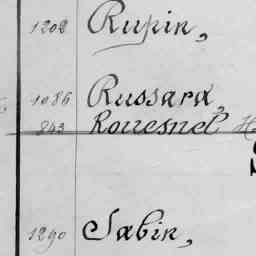 1202 Rupin,
1086 Russard,
843 Rouesnel H
1290 Sabin,